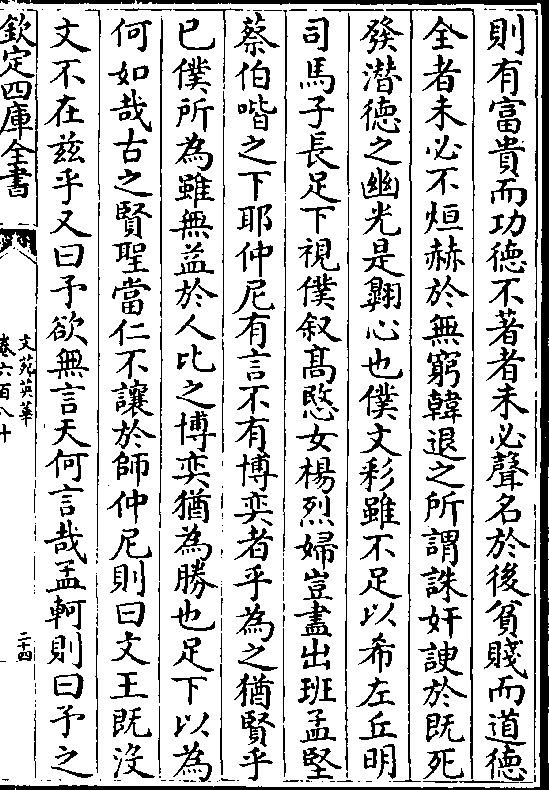 則有富貴而功德不著者未必聲名於後貧賤而道德
全者未必不烜赫於無窮韓退之所謂誅奸諛於既死
發潜德之幽光是翺心也僕文彩雖不足以希左丘明
司馬子長足下視僕叙髙愍女楊烈婦豈盡出班孟堅
蔡伯喈之下耶仲尼有言不有博奕者乎為之猶賢乎
已僕所為雖無益於人比之博奕猶為勝也足下以為
何如哉古之賢聖當仁不讓於師仲尼則曰文王既没
文不在兹乎又曰予欲無言天何言哉孟軻則曰予之
欽定四庫全書
文苑英華
卷六百八十
二十四